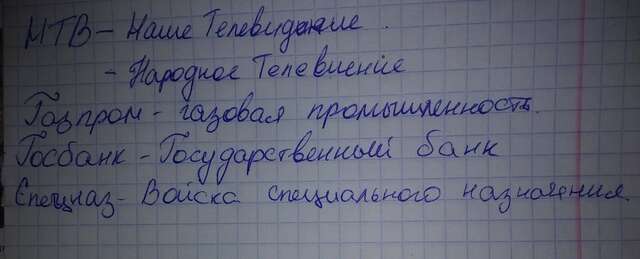 НТВ - Наше Телевидение.
- Народное Телевиение
Газпром - газовая промышленность.
Госбанк - Государственный банк
Спецназ - Войска специального назначения.